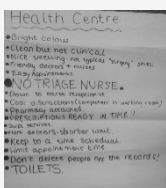 Health Centre
• Bright colours
• Clean but not clinical
• Nice smelling - not typical "empty" smell
• Friendly doctors + nurses
• Easy Appointments
NO TRIAGE NURSE.
• Down to earth Reception
• Cool distractions (computers in waiting room)
• Pharmacy attached.
• PRESCRIPTIONS READY IN TIME!!
services
• More doctors-shorter wait
• Keep to a time schedule.
• Limit appointment time
• Don't delete people off the records!!
• TOILETS.